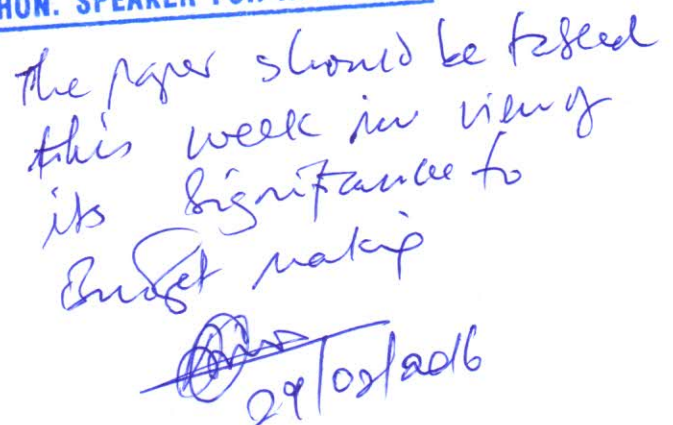 HON. SPEAKER FOR
The paper should be tabled
this week in view of
its significance to
Budget making
29/02/2016